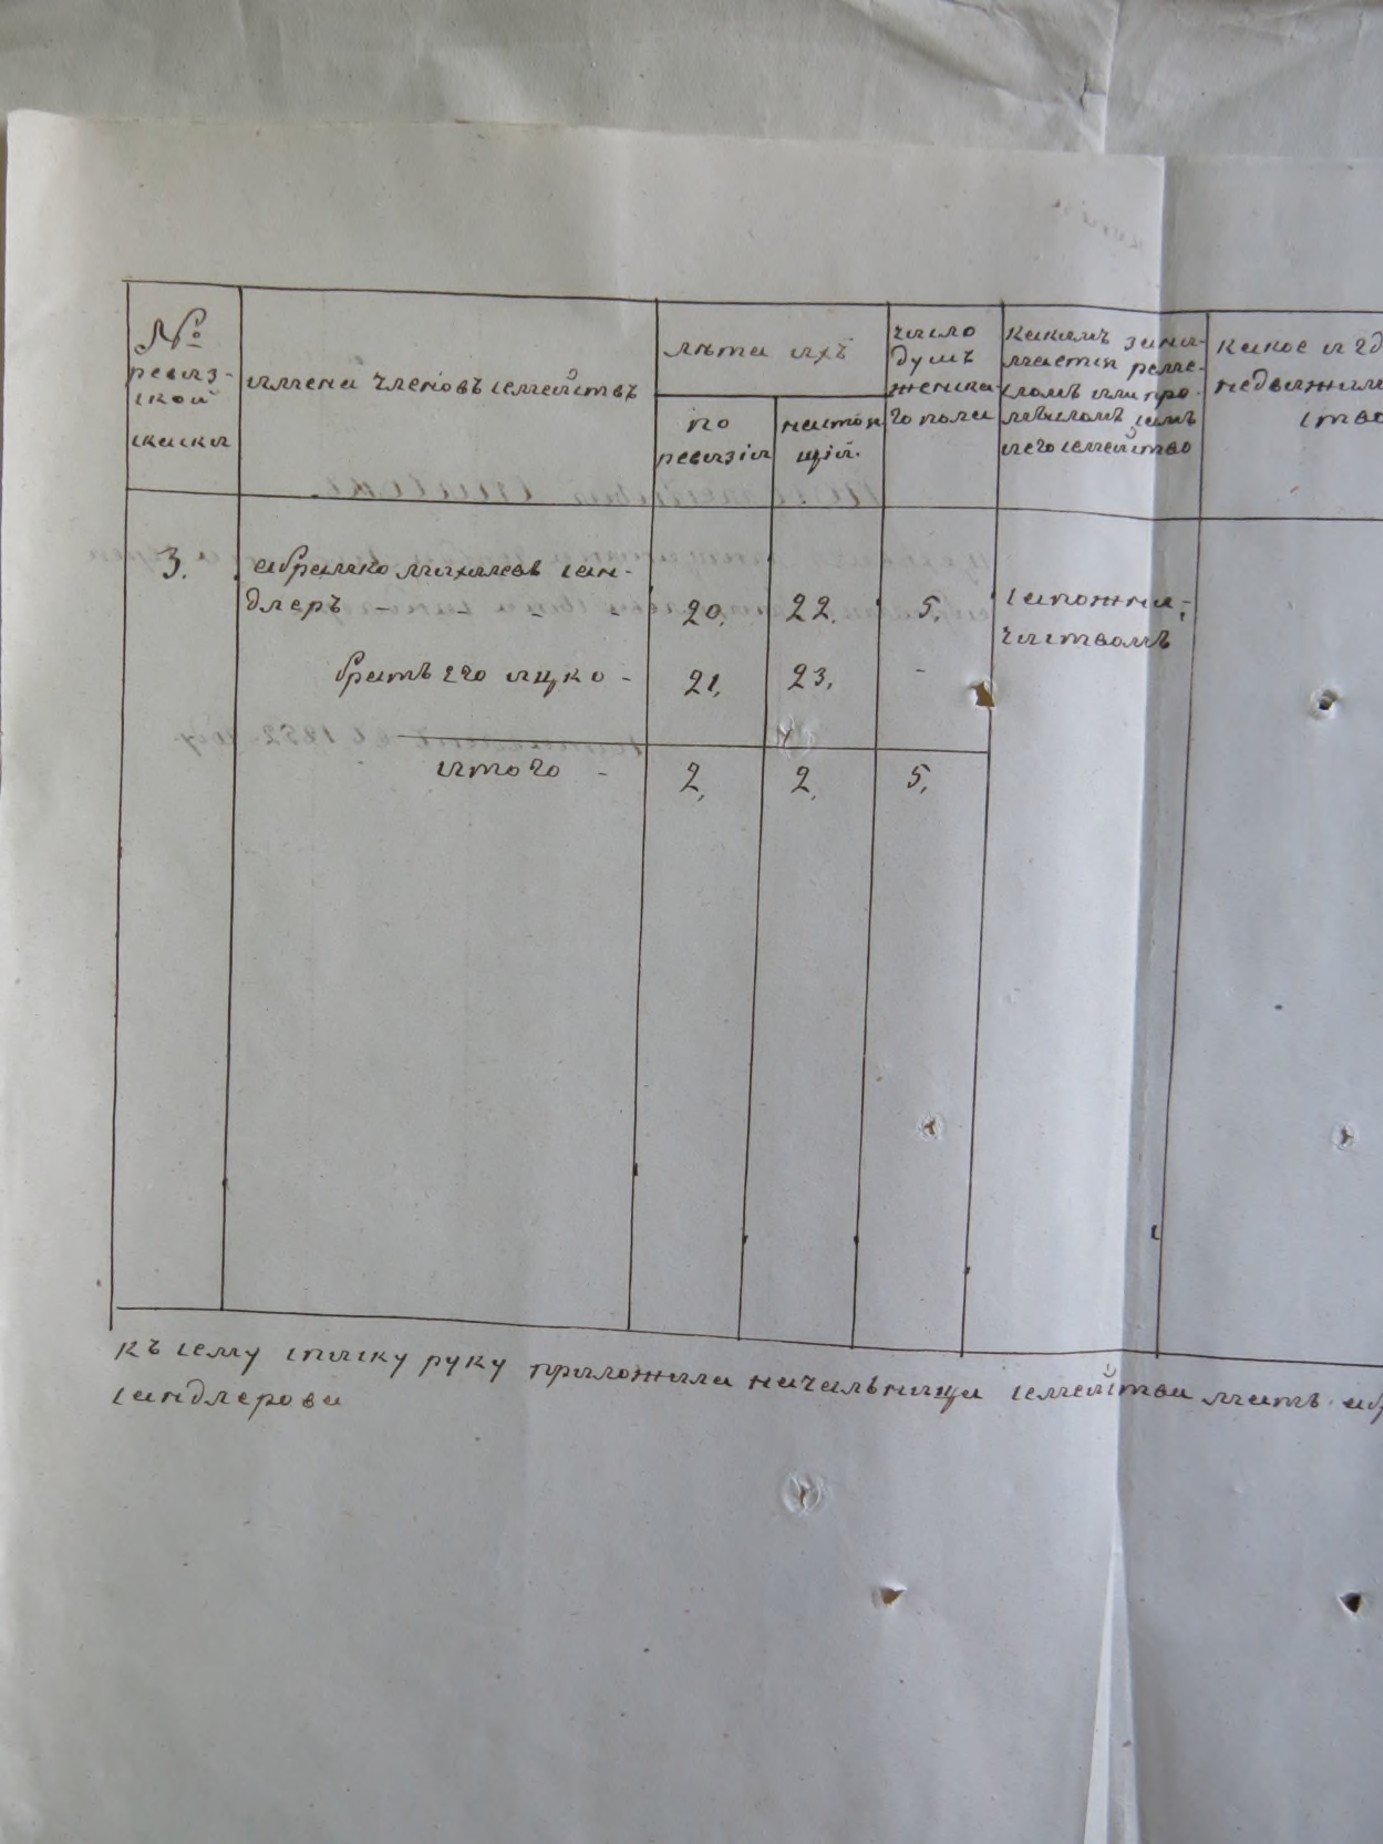 №
ревиз-
ской
скаски
имена членовъ семействъ
лѣта ихъ
по
ревизіи
настоя
щій.
число
душъ
женска
го пола
какимъ зани-
мается реме-
сломъ или про-
мысломъ самъ
и его семейство
какое и гд
недвижим
ство
3.
абрамко михелевъ сан-
длеръ - - - -
20.
22.
5.
сапожни-
чествомъ
братъ его ицко -
21,
23,
-
итого -
2,
2,
5,
къ сему списку руку приложила начальница семейства мать аб
сандлерова